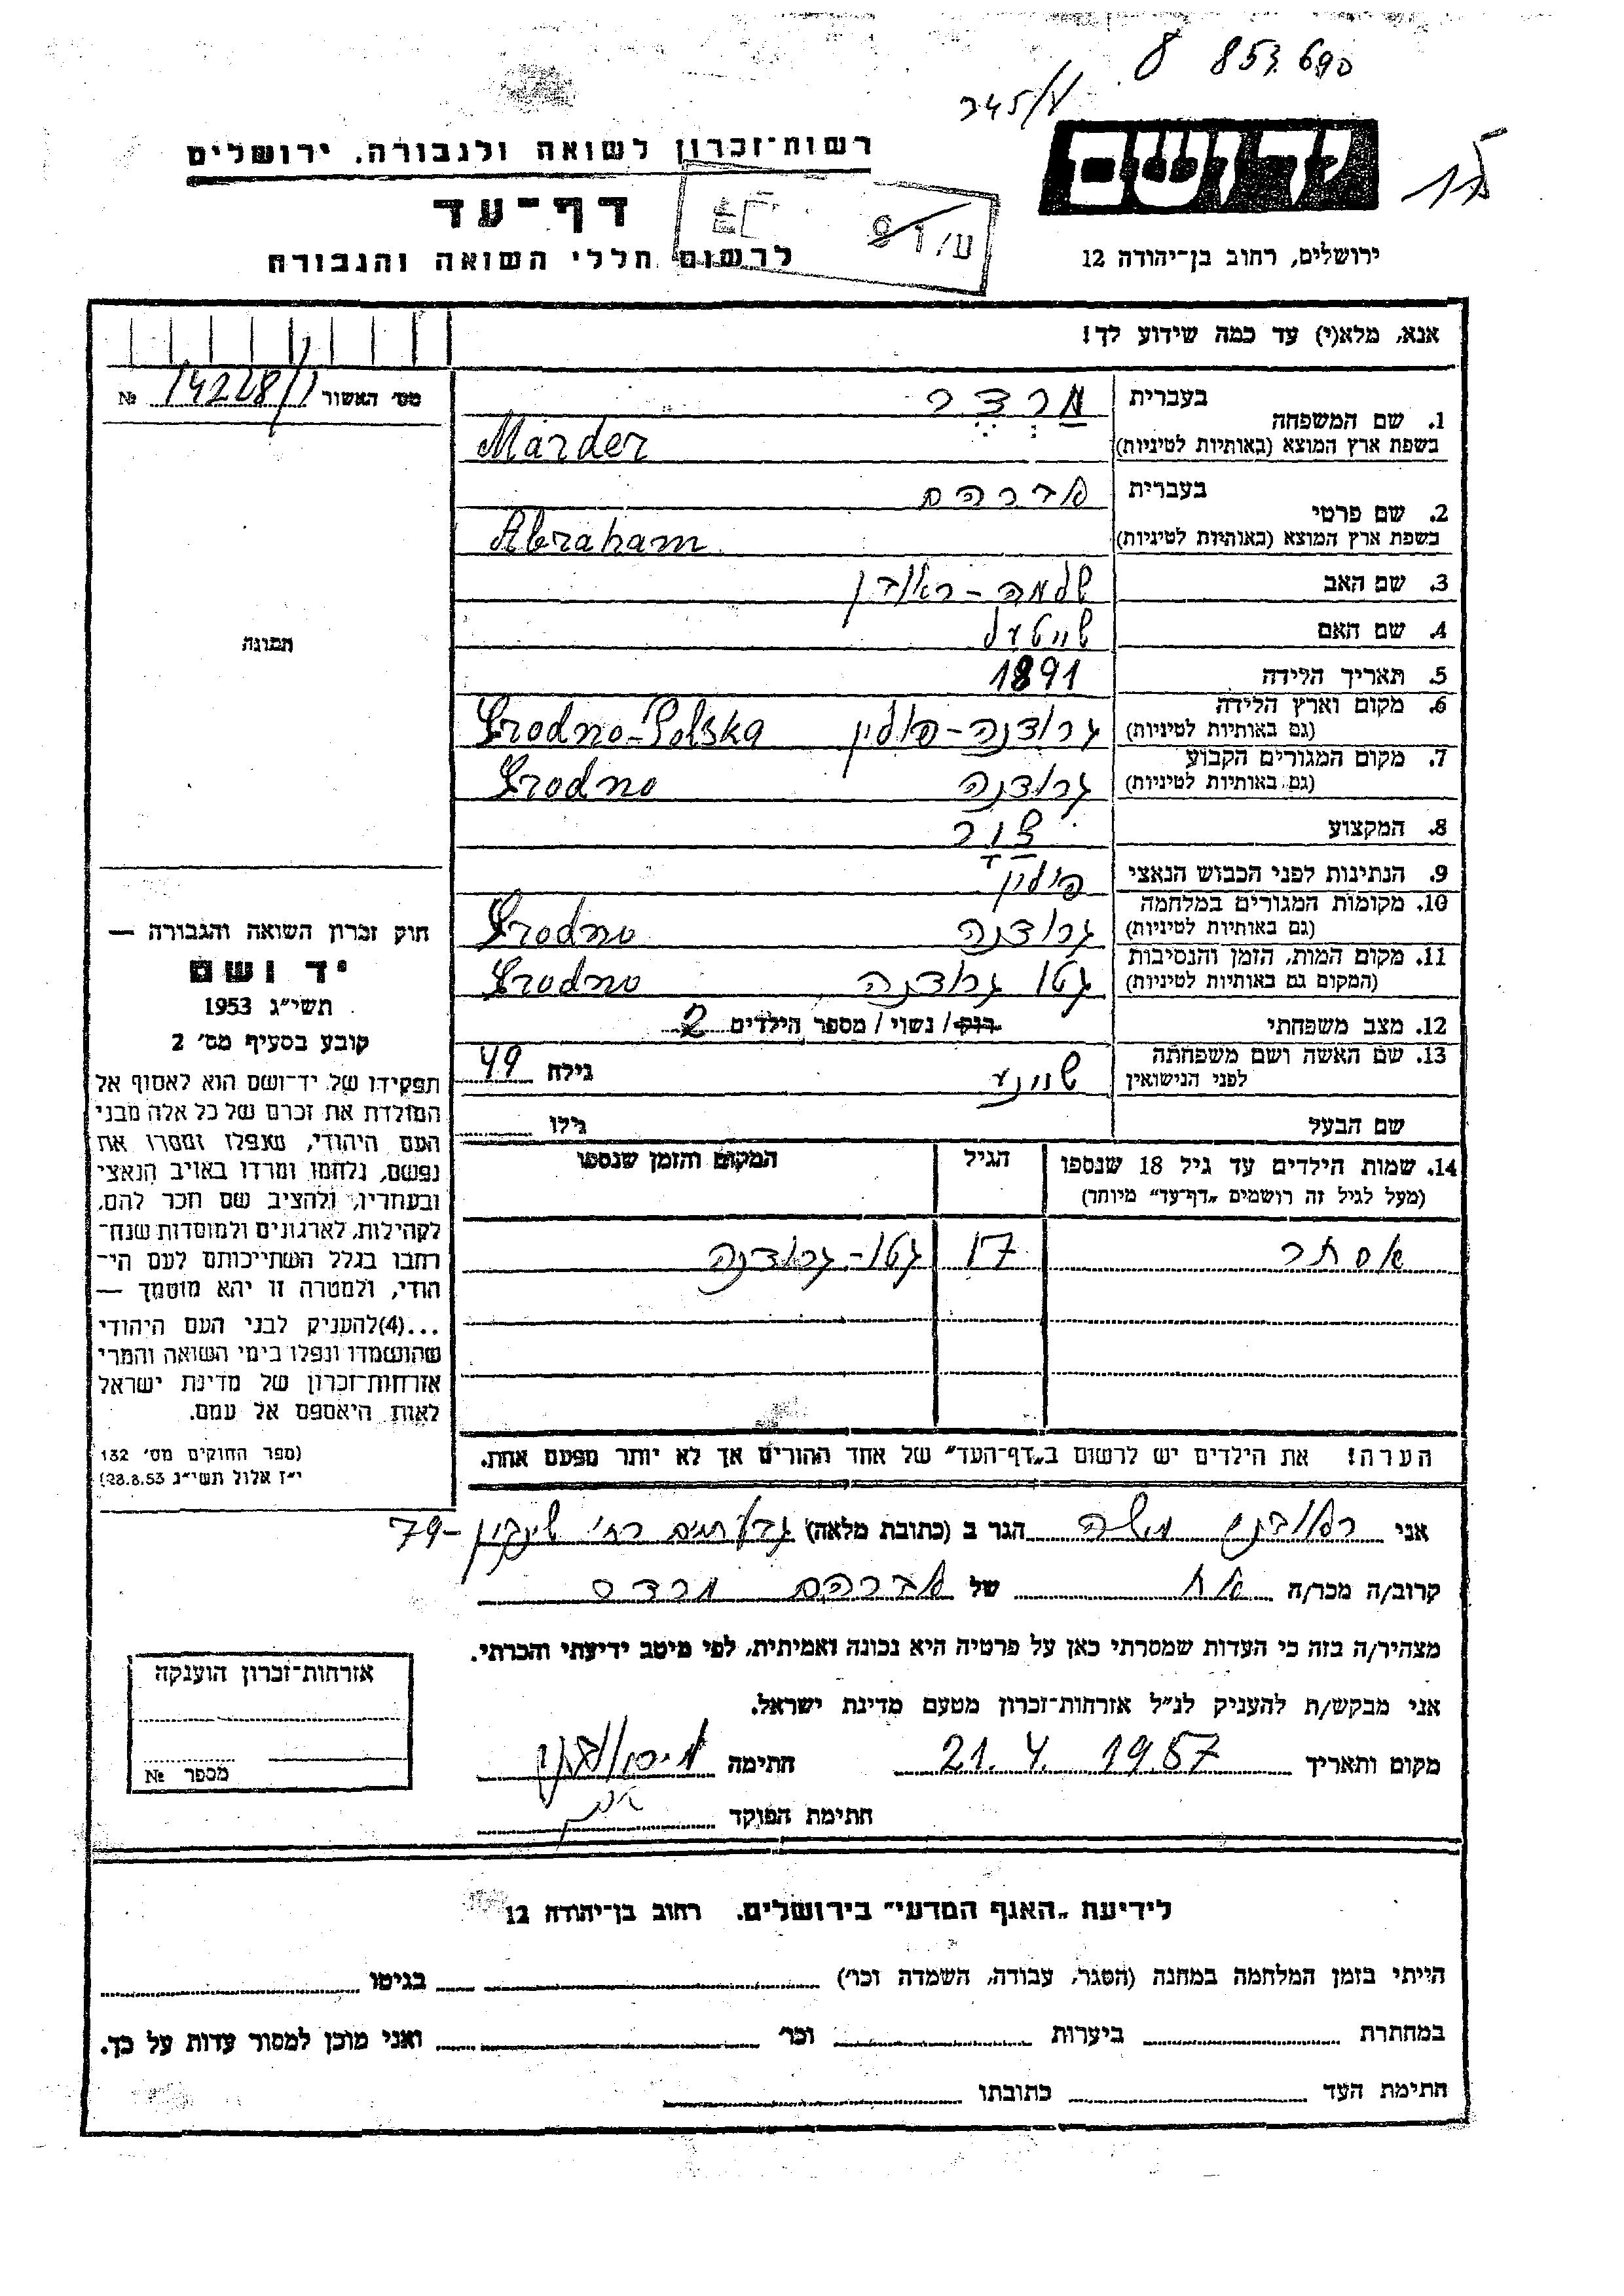 8 853690
345/ע
רשות־זכרון לשואה ולגבורה, ירושלים
יד ושם
דף־עד
ע/91
לרשום חללי השואה והגבורה
ירושלים, רחוב בן־יהודה 12
אנא, מלא(י) עד כמה שידוע לך!
מס׳ האשור 14228/ № 
בעברית מרדר
1. שם המשפחה
בשפת ארץ המוצא (באותיות לטיניות) Marder
בעברית אברהם
2. שם פרטי
בשפת ארץ המוצא (באותיות לטיניות) Abraham
3. שם האב שלמה - ראובן
4. שם האם שייטעל
תמונה
5. תאריך הלידה 1891
6. מקום וארץ הלידה
(גם באותיות לטיניות) גרודנה - פולין Grodno-Polska
7. מקום המגורים הקבוע
(גם באותיות לטיניות) גרודנה Grodno
8. המקצוע
9. הנתינות לפני הכבוש הנאצי פולין
10. מקומות המגורים במלחמה
(גם באותיות לטיניות) גרודנה Grodno
11. מקום המות, הזמן והנסיבות
(המקום גם באותיות לטיניות) גטו גרודנה Grodno
12. מצב משפחתי רוק / נשוי / מספר הילדים 2
13. שם האשה ושם משפחתה
לפני הנישואין שיינע גילה 49
שם הבעל גילו
14. שמות הילדים עד גיל 18 שנספו הגיל המקום והזמן שנספו
(מעל לגיל זה רושמים „דף־עד״ מיוחד)
אסתר 17 גטו - גרודנה
הערה! את הילדים יש לרשום ב„דף־העד״ של אחד ההורים אך לא יותר מפעם אחת.
חוק זכרון השואה והגבורה —
יד ושם
תשי״ג 1953
קובע בסעיף מס׳ 2
תפקידו של יד־ושם הוא לאסוף אל
המולדת את זכרם של כל אלה מבני
העם היהודי, שנפלו ומסרו את
נפשם, נלחמו ומרדו באויב הנאצי
ובעוזריו, ולהציב שם וזכר להם,
לקהילות, לארגונים ולמוסדות שנח־
רבו בגלל השתייכותם לעם הי־
הודי, ולמטרה זו יהא מוסמך —
...(4) להעניק לבני העם היהודי
שהושמדו ונפלו בימי השואה והמרי
אזרחות־זכרון של מדינת ישראל
לאות היאספם אל עמם.
(ספר החוקים מס׳ 132
י״ז אלול תשי״ג 28.8.53)
אני ראובני משה הגר ב (כתובת מלאה) גבעתיים רח׳ 79-
קרוב/ה מכר/ה אח של אברהם מרדר
מצהיר/ה בזה כי העדות שמסרתי כאן על פרטיה היא נכונה ואמיתית, לפי מיטב ידיעתי והכרתי.
אני מבקש/ת להעניק לנ״ל אזרחות־זכרון מטעם מדינת ישראל.
מקום ותאריך 21.4.1957 חתימה
חתימת הפוקד
אזרחות־זכרון הוענקה
מספר №
לידיעת „האגף המדעי״ בירושלים. רחוב בן־יהודה 12
הייתי בזמן המלחמה במחנה (הסגר, עבודה, השמדה וכו׳) בגיטו
במחתרת ביערות וכו׳ ואני מוכן למסור עדות על כך.
חתימת העד כתובתו